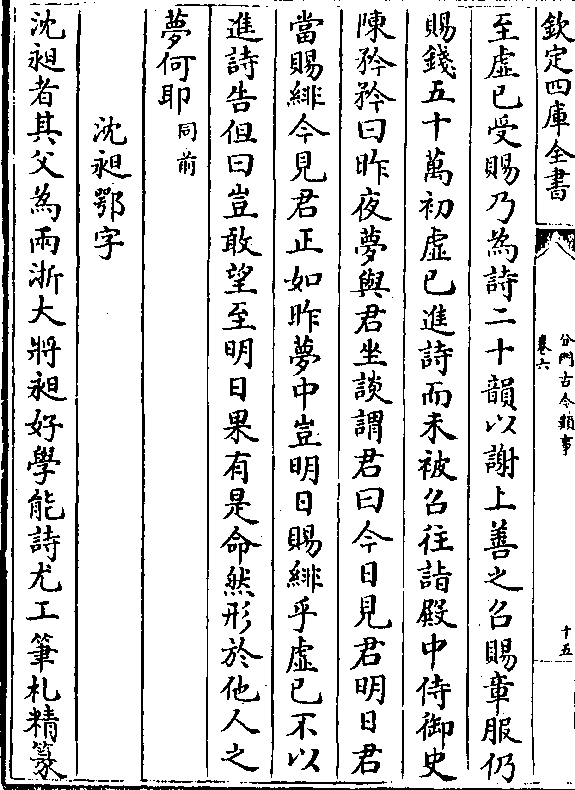 欽定四庫全書
分門古今類事
卷六
十五
至虛已受賜乃為詩二十韻以謝上善之召賜章服仍
賜錢五十萬初虛已進詩而未被召往詣殿中侍御史
陳矜矜曰昨夜夢與君坐談謂君曰今日見君明日君
當賜緋今見君正如昨夢中豈明日賜緋乎虛已不以
進詩告但曰豈敢望至明日果有是命然形於他人之
夢何耶同前
沈昶鄂字
沈昶者其父為兩浙大將昶好學能詩尤工筆札精篆